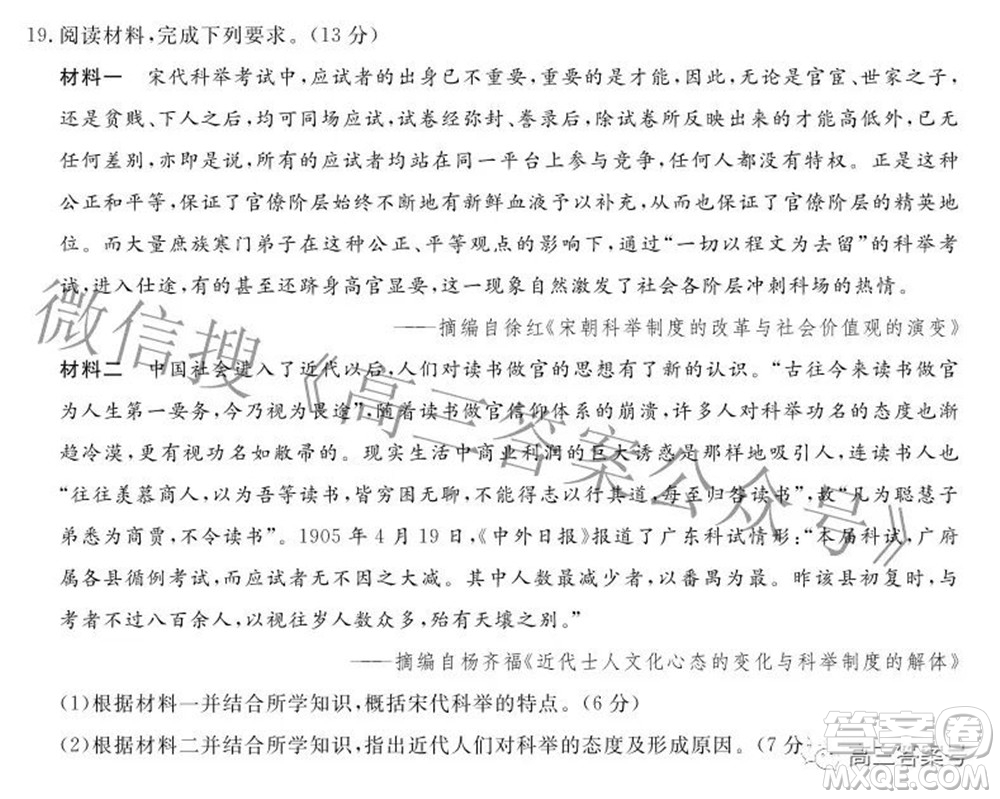 19.阅读材料,完成下列要求。(13分)
材料一 宋代科举考试中,应试者的出身已不重要,重要的是才能,因此,无论是官宦、世家之子,
还是贫贱、下人之后,均可同场应试,试卷经弥封、誊录后,除试卷所反映出来的才能高低外,已无
任何差别,亦即是说,所有的应试者均站在同一平台上参与竞争,任何人都没有特权。正是这种
公正和平等,保证了官僚阶层始终不断地有新鲜血液予以补充,从而保证了官僚阶层的精英地
位。而大量庶族寒门弟子在这种公正、平等观点的影响下,通过“一切以程文为去留”的科举考
试,进入仕途,有的甚至还跻身高官显要,这一现象自然激发了社会各阶层冲刺科场的热情。
——摘编自徐红《宋朝科举制度的改革与社会价值观的演变》
材料二 中国社会进入了近代以后,人们对读书做官的思想有了新的认识。“古往今来读书做官
为人生第一要务,今乃视为畏途”,随着读书做官信仰体系的崩溃,许多人对科举功名的态度也渐
趋冷漠,更有视功名如敝帚的。现实生活中商业利润的巨大诱惑是那样地吸引人,连读书人也
“往往羡慕商人,以为吾等读书,皆穷困无聊,不能得志以行其道,每至归咎读书”,故“凡为聪慧子
弟悉为商贾,不令读书”。1905年4月19日,《中外日报》报道了广东科试情形:“本届科试,广府
属各县循例考试,而应试者无不因之大减。其中人数最减少者,以番禺为最。昨该县初复时,与
考者不过八百余人,以视往岁人数众多,殆有天壤之别。”
——摘编自杨齐福《近代士人文化心态的变化与科举制度的解体》
(1)根据材料一并结合所学知识,概括宋代科举的特点。(6分)
(2)根据材料二并结合所学知识,指出近代人们对科举的态度及形成原因。(7分
微信搜《高三答案公众号》
高三答案号
答案圈
MXQE.COM